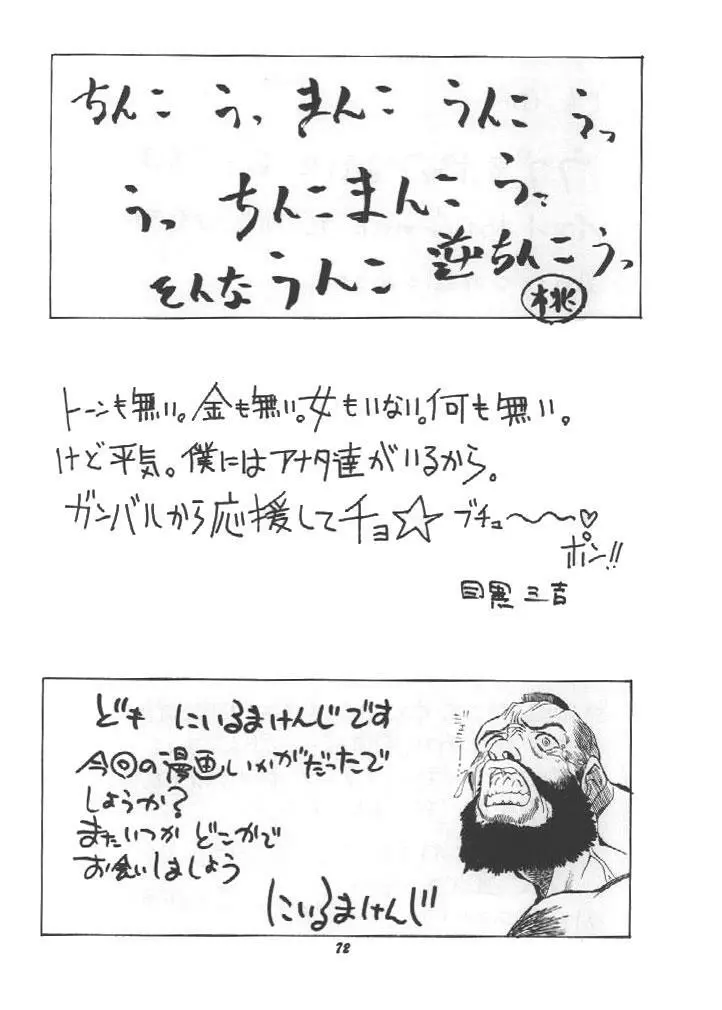 ちんこ うっ まんこ うんこ うっ
うっ ちんこまんこ うっ
そんなうんこ 逆ちんこうっ
桃
トーンも無い。金も無い。女もいない。何も無い。
けど平気。僕にはアナタ達がいるから。
ガンバルから応援してチョ☆ ブチョ〜〜〜♡
ポン!!
目黒三吉
ども にいるまけんじです
今回の漫画いかがだったで
しょうか?
またいつか どこかで
お会いしましょう
にいるまけんじ
72